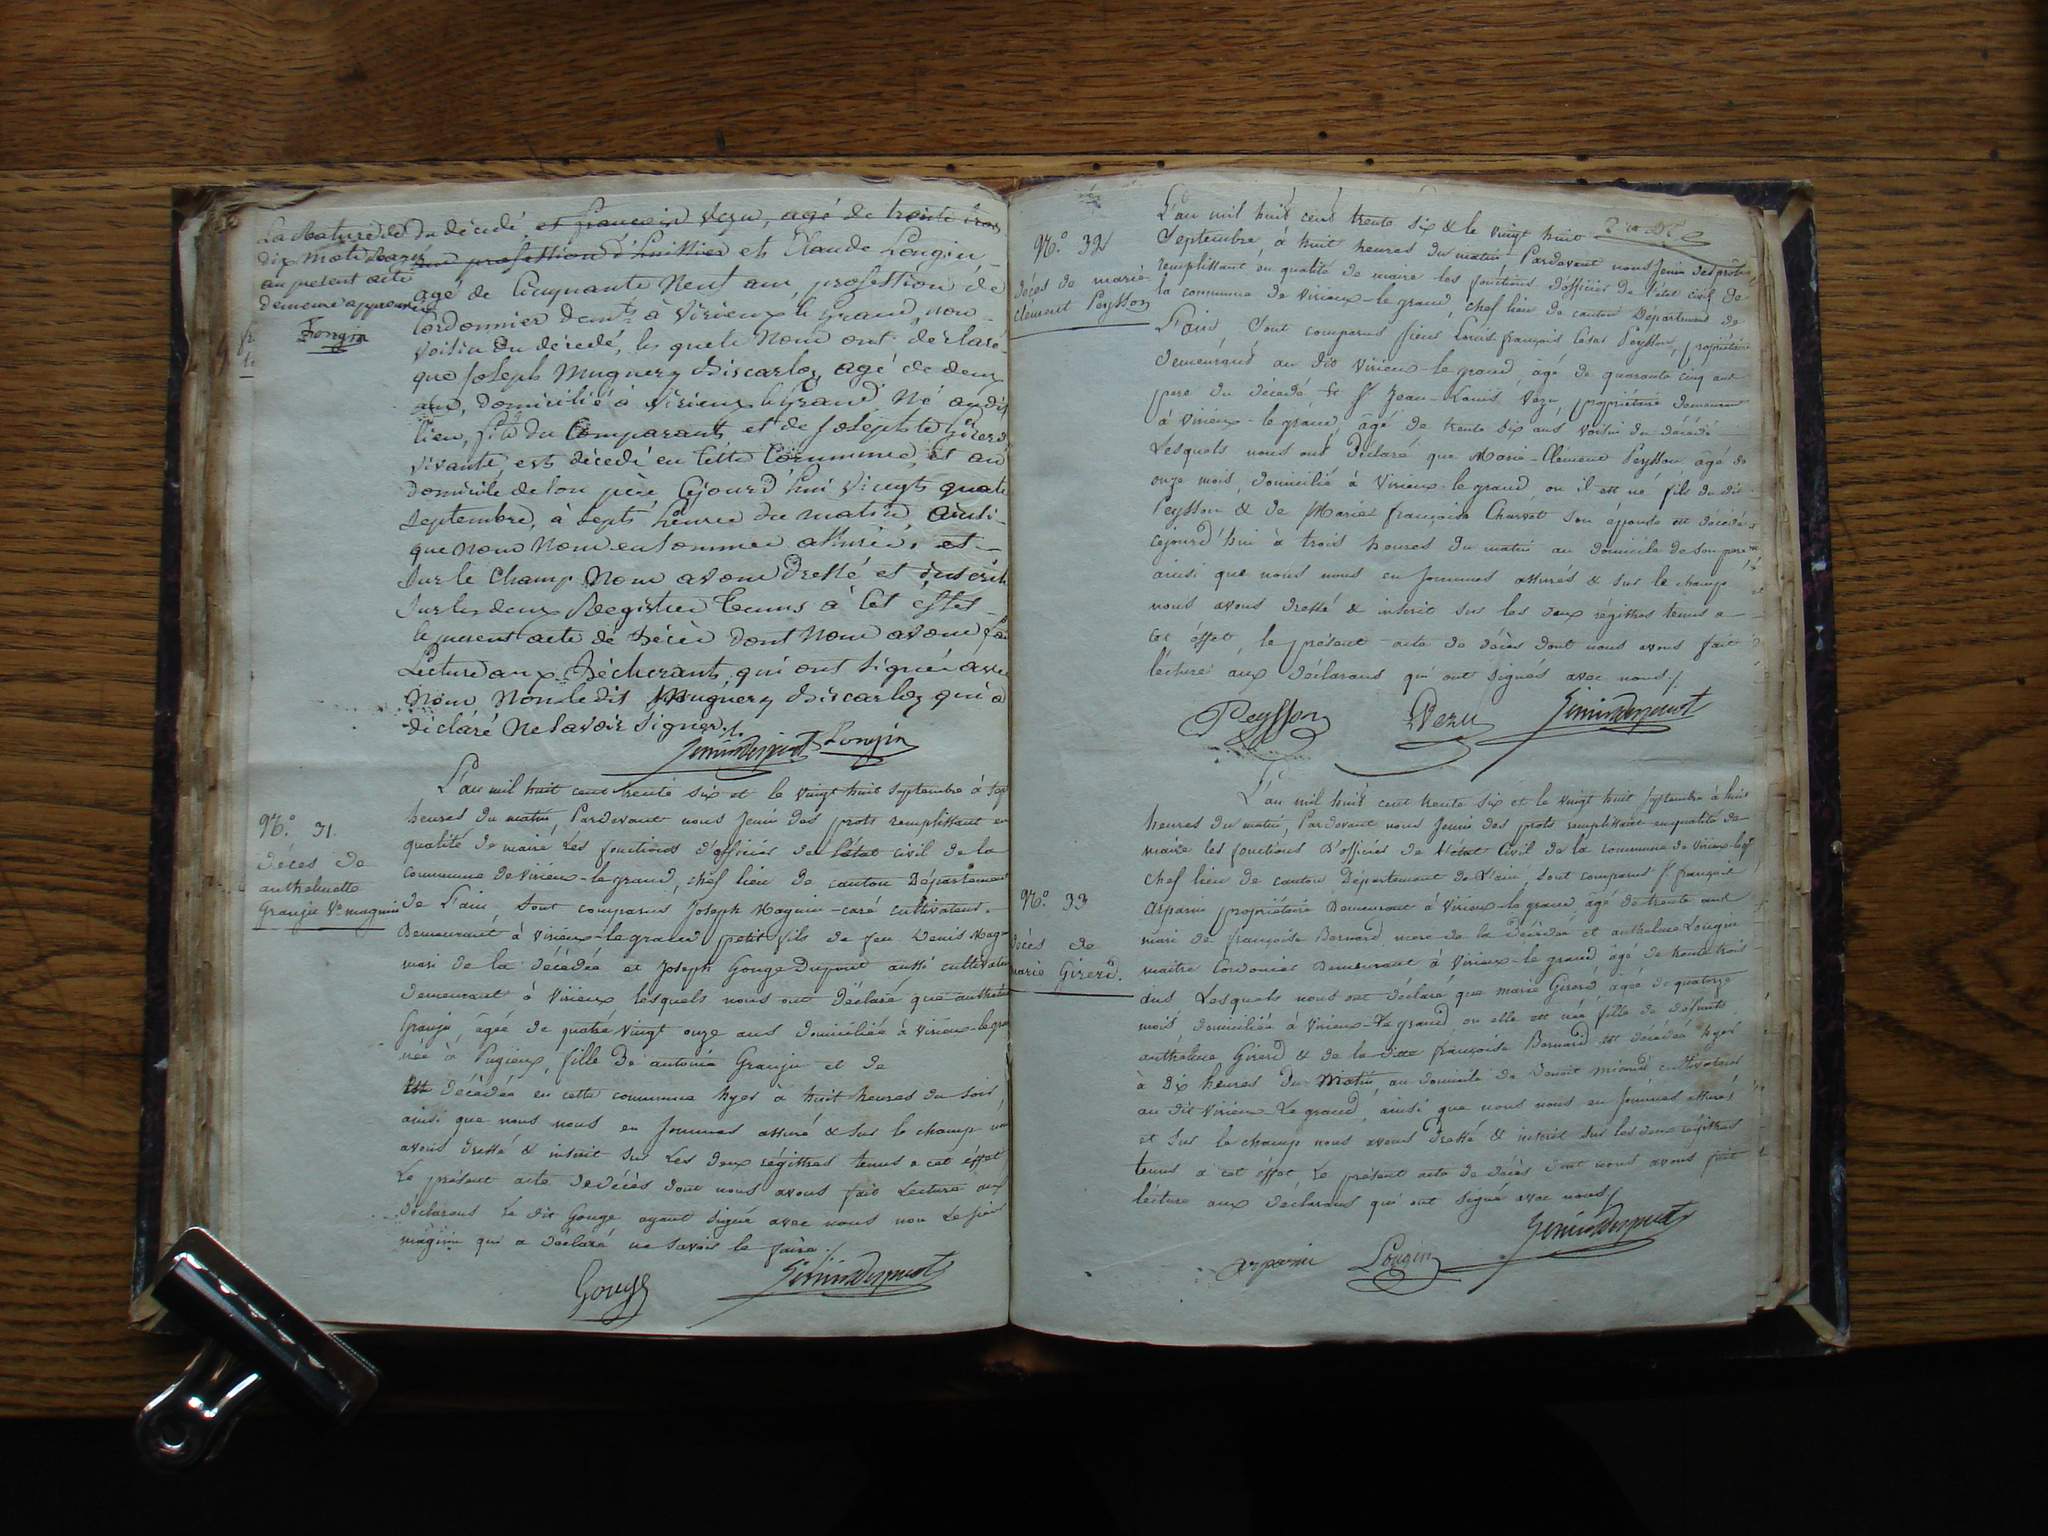 La Rature de
dix mots Rayés
au present acte
demeure approuvée
Longin
du décédé, et françois Vezu, agé de trente trois
ans profession d'huissier et Claude Longin
agé de Cinquante Neuf ans, profession de
Cordonnier demt à Virieux le Grand, non
voisin du décedé, les quels Nous ont declaré
que Joseph Muguery Discarloz agé de deux
ans, domicilié à Virieux le Grand, Né au dit
lieu, fils du Comparant et de Josephte Girerd
vivante, est décedé en Cette Commune, et au
domicile de son père Cejourd'hui Vingt quatre
septembre, à sept heures du matin, ainsi
que nous Nous en sommes assurés, et
sur le Champ Nous avons dressé et inscrit
sur les deux Registres tenus à Cet effet
le présent acte de décès dont Nous avons fait
Lecture aux Déclarants, qui ont signés avec
Nous, Non le dit Muguery Discarloz qui a
déclaré Ne savoir signer ./.
Jenin Desprost Longin
No. 31.
décès de
anthelmette
Granju Ve magnin
L'an mil huit cent trente six et le vingt huit septembre à sept
heures du matin Pardevant nous Jenin des prots remplissant en
qualité de maire les fonctions d'officier de l'état civil de la
commune de Virieux-le-grand, chef lieu de canton Département
de L'ain, sont comparus Joseph Magnin-caré cultivateur
Demeurant à Virieux-le-grand petit fils de feu Denis Mag-
mari de la décédée et Joseph Gouge Dupont aussi cultivateur
demeurant à Virieux lesquels nous ont Déclaré que anthelmette
Granju, âgée de quatre vingt onze ans domiciliée à Virieux-le-gran
née à Pugieux, fille De antoine Granju et de
est décédée en cette commune hyer à huit heures du soir,
ainsi que nous nous en sommes assuré & sur le champ nous
avons dressé & inscrit sur les deux régistres tenus a cet éffet
Le présent acte de décès dont nous avons fait Lecture aux
déclarans le dit Gouge ayant signé avec nous non le sieur
magnin qui a déclaré ne savoir le faire ./.
Gouge Jenin Desprost
No. 32
décès de marie
clément Peysson
L'an mil huit cent trente six & le vingt huit
Septembre, à huit heures du matin Pardevant nous Jenin desprots
remplissant en qualité de maire les fonctions d'officier de l'état civil de
la commune de Virieux-le-grand, chef lieu de canton Département de
L'ain, Sont comparus sieur Louis-françois César Peysson, propriétaire
demeurant au dit Virieux-le-grand, âgé de quarante cinq ans
pere du décédé & Sr Jean-Louis Vezu, propriétaire demeurant
à Virieux-le-grand, âgé de trente six ans, voisin du décédé
Lesquels nous ont Déclaré que Marie-Clément Peysson, âgé de
onze mois, domicilié à Virieux-le-grand, ou il est né, fils du dit
Peysson & de Marie françoise Charvet son épouse est décédé
cejourd'hui à trois heures du matin au domicile de son pere
ainsi que nous nous en sommes assurés & sur le champ
nous avons dressé & inscrit sur les deux régistres tenus a
cet éffet, le présent acte de décès dont nous avons fait
lecture aux déclarans qui ont signés avec nous ./.
Peysson Vezu Jenin Desprost
No. 33
décès de
marie Girerd.
L'an mil huit cent trente six et le vingt huit Septembre à huit
heures du matin, Pardevant nous Jenin des prots remplissant en qualité de
maire les fonctions D'officier de l'état Civil de la commune de Virieux-le-gd
chef lieu de canton Département de L'ain, sont comparus Sr françois
Arparin propriétaire Demeurant à Virieux-le grand âgé de trente ans
mari de françoise Bernard mere de la Décédée et anthelme Longin
maitre Cordonier Demeurant à Virieux-le grand âgé de trente trois
ans Lesquels nous ont déclaré que marie Girerd, âgée de quatorze
mois, domiciliée à Virieux-Le grand, ou elle est née, fille de défunt
anthelme Girerd & de la dite françoise Bernard est décédée hyer
à Dix heures du Matin, au domicile de Benoit cultivateur
au dit Virieux-Le grand, ainsi que nous nous en sommes assurés
et sur le champ nous avons dressé & inscrit sur les deux régistres
tenus a cet éffet Le présent acte de décès dont nous avons fait
lecture aux déclarans qui ont signé avec nous ./.
arparin Longin Jenin Desprost